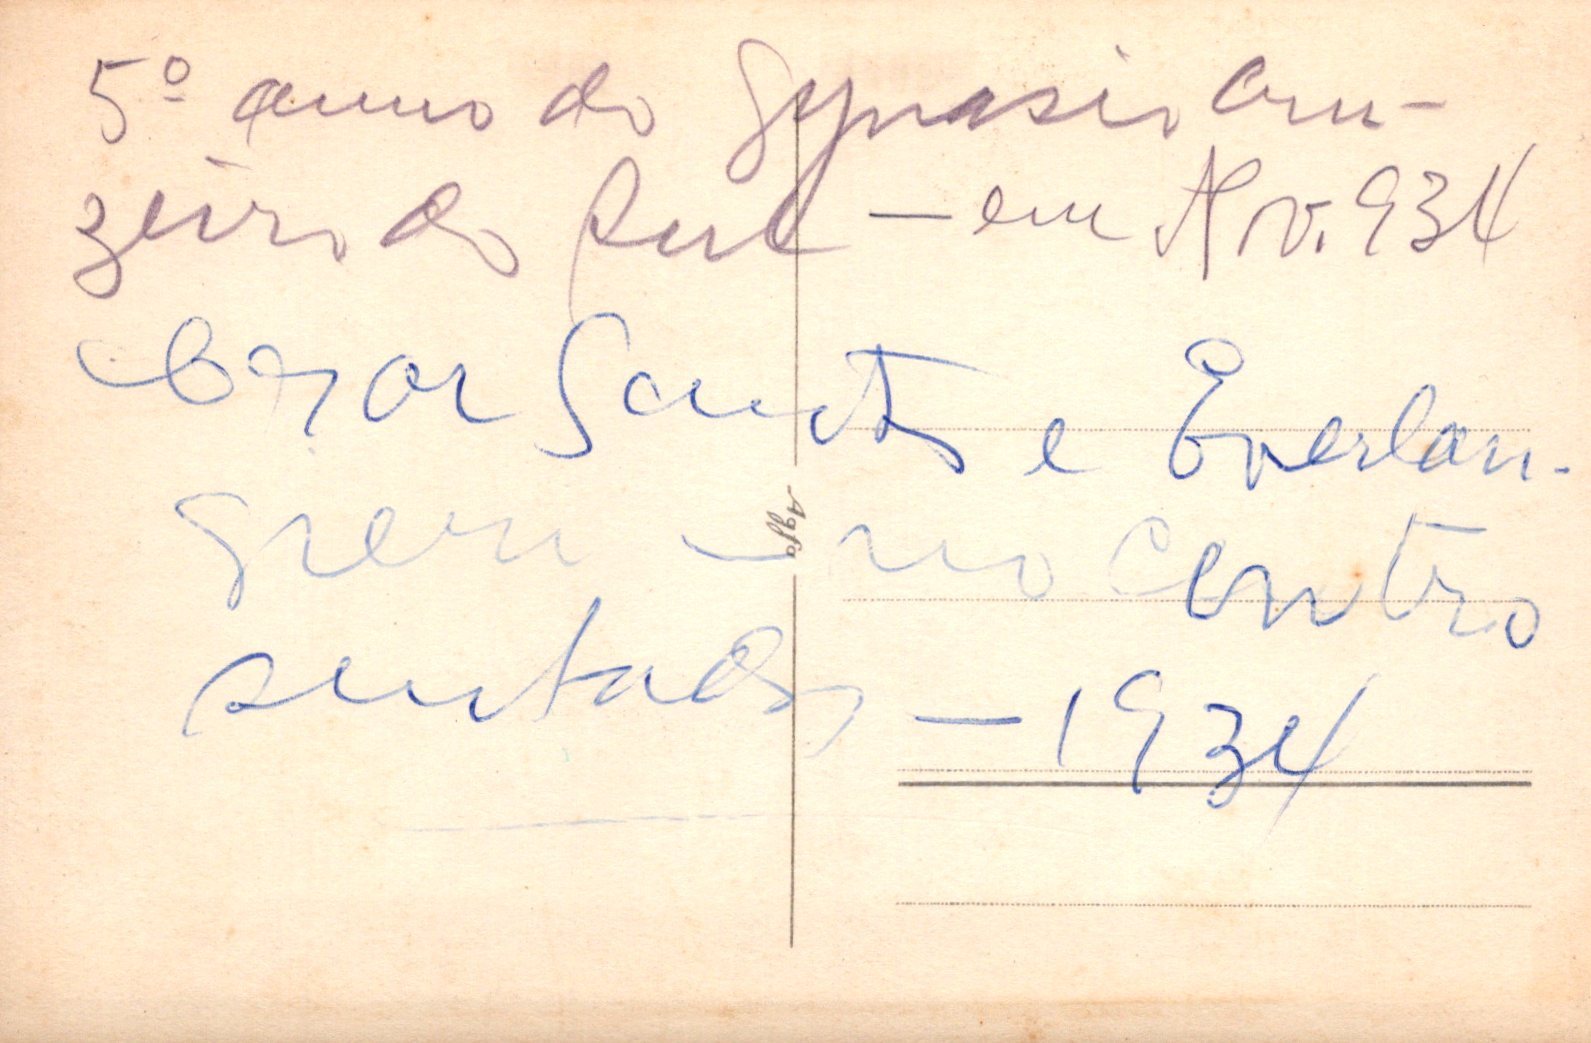 5º anno do Gynasio Cru-
zeiro do Sul — em Nov. 934
Santos e Everlan-
gieri — no centro
sentados — 1934
Agfa